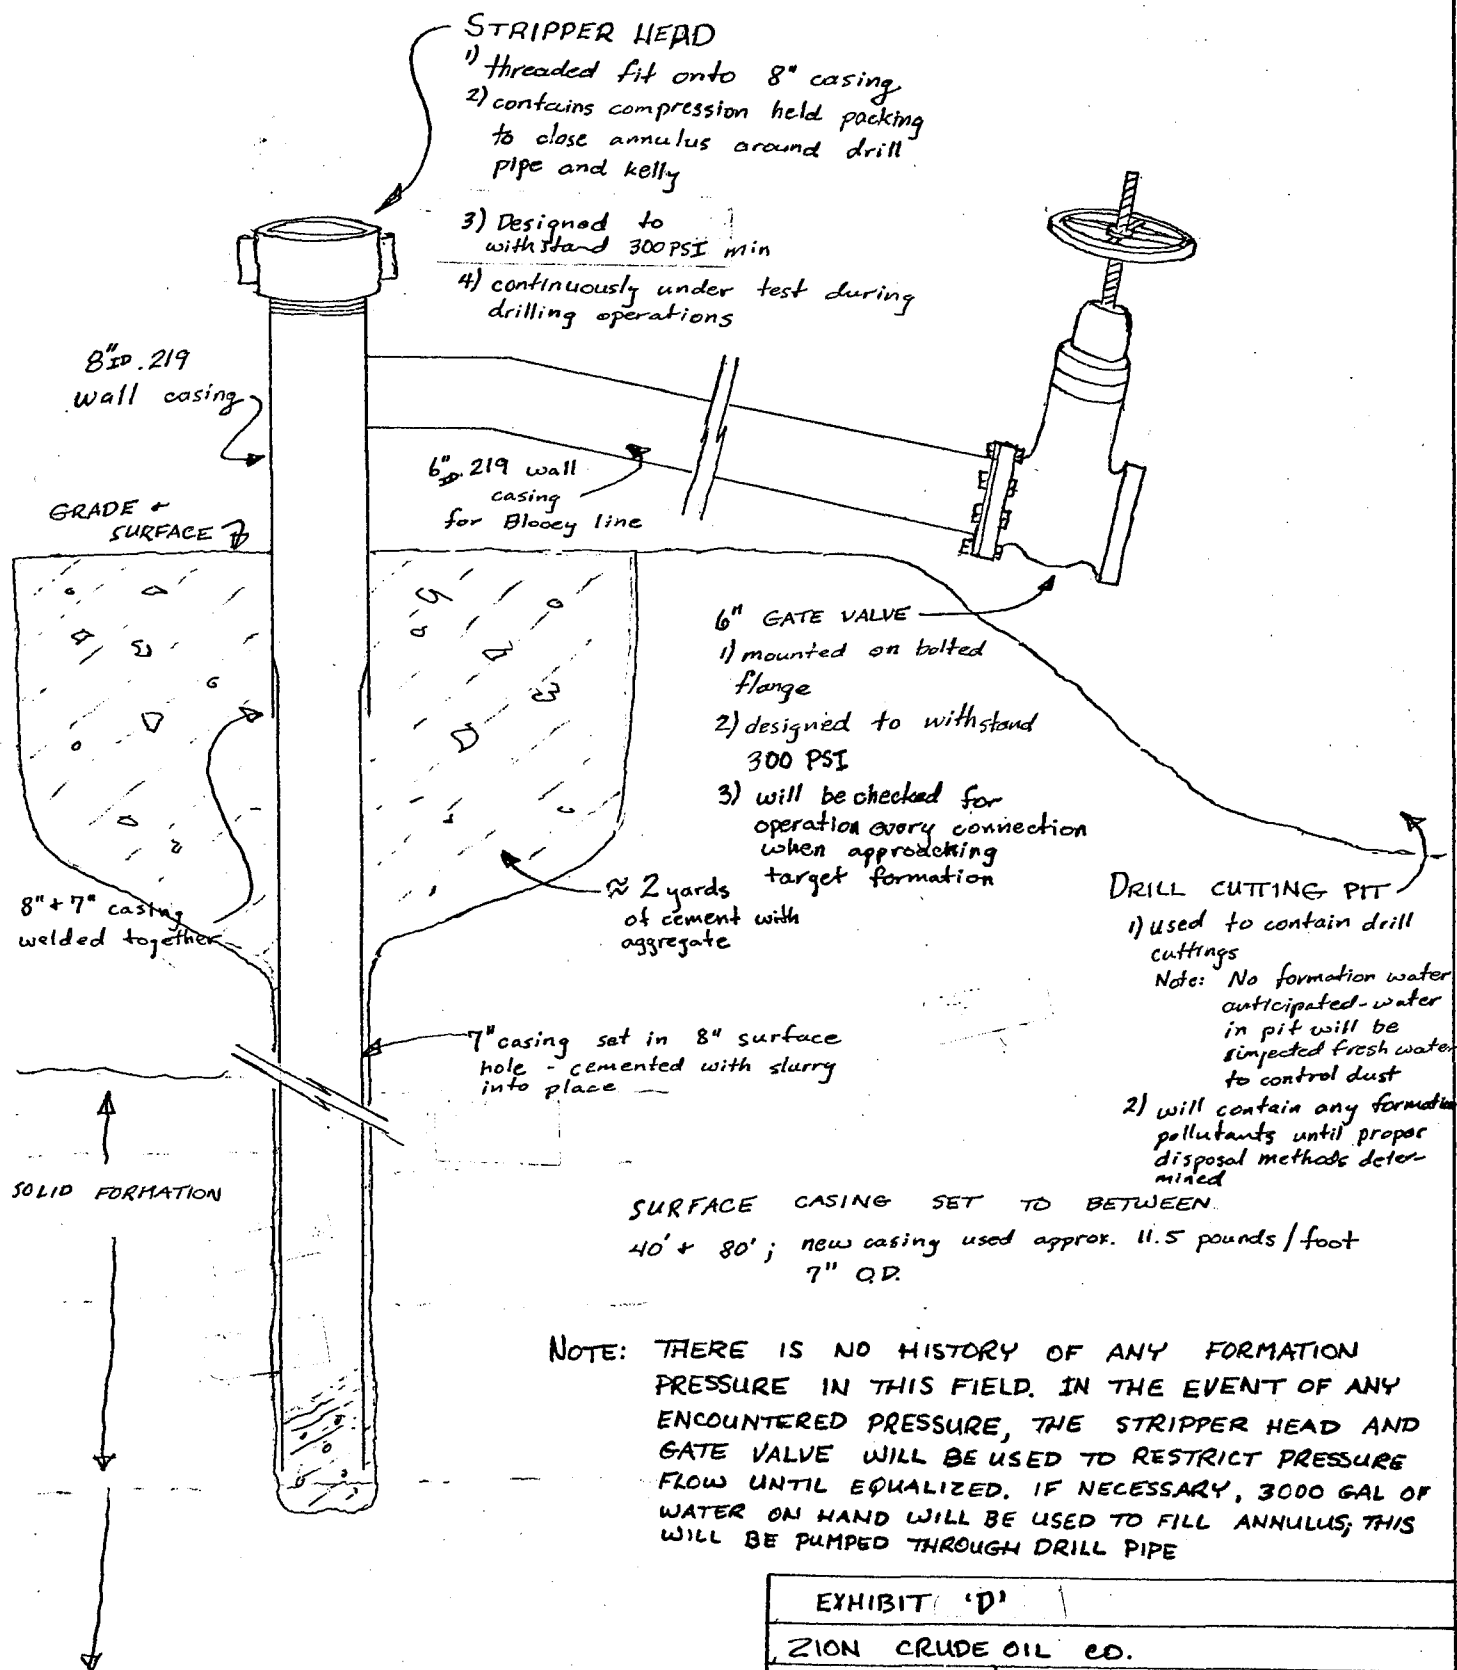 STRIPPER HEAD
1) threaded fit onto 8" casing
2) contains compression held packing
to close annulus around drill
pipe and kelly
3) Designed to
withstand 300 PSI min
4) continuously under test during
drilling operations
8" ID .219
wall casing
6" ID .219 wall
casing
for Blooey line
GRADE +
SURFACE
6" GATE VALVE
1) mounted on bolted
flange
2) designed to withstand
300 PSI
3) will be checked for
operation every connection
when approaching
target formation
≈ 2 yards
of cement with
aggregate
8" + 7" casing
welded together
DRILL CUTTING PIT
1) used to contain drill
cuttings
Note: No formation water
anticipated - water
in pit will be
injected fresh water
to control dust
2) will contain any formation
pollutants until proper
disposal methods deter-
mined
7" casing set in 8" surface
hole - cemented with slurry
into place
SOLID FORMATION
SURFACE CASING SET TO BETWEEN
40' + 80'; new casing used approx. 11.5 pounds/foot
7" O.D.
NOTE: THERE IS NO HISTORY OF ANY FORMATION
PRESSURE IN THIS FIELD. IN THE EVENT OF ANY
ENCOUNTERED PRESSURE, THE STRIPPER HEAD AND
GATE VALVE WILL BE USED TO RESTRICT PRESSURE
FLOW UNTIL EQUALIZED. IF NECESSARY, 3000 GAL OF
WATER ON HAND WILL BE USED TO FILL ANNULUS; THIS
WILL BE PUMPED THROUGH DRILL PIPE
EXHIBIT 'D'
ZION CRUDE OIL CO.